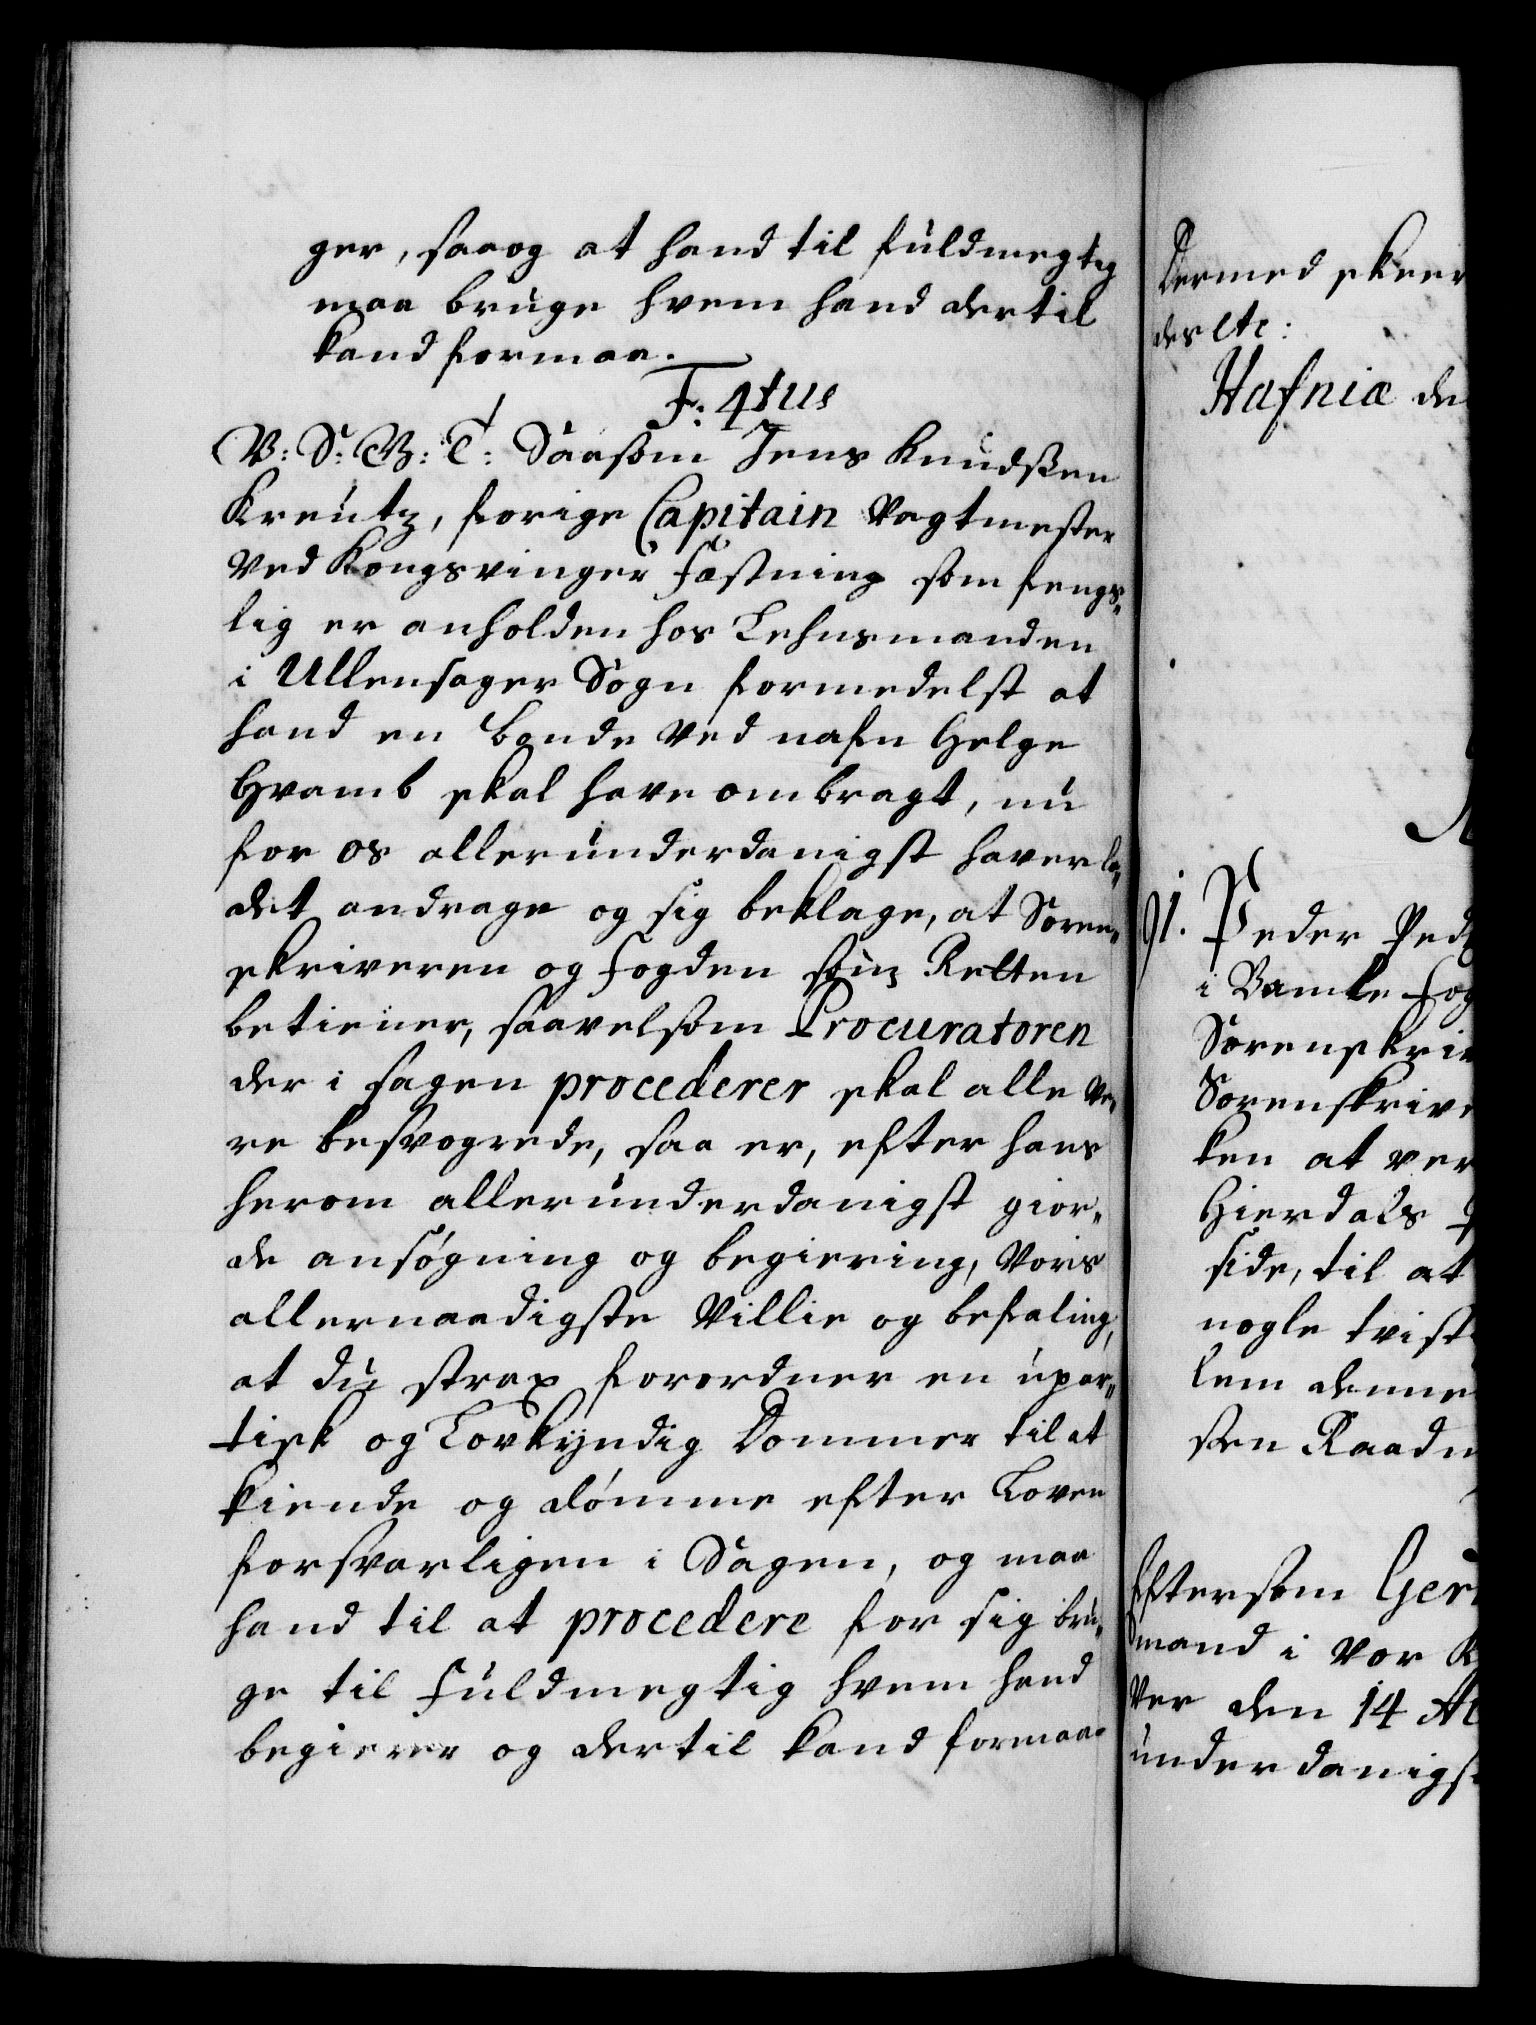 ger, saaog at hand til fuldmegtig
maa bruge hvem hand dertil
kand formaa.
F: 4tus
V: S: G: T: Saasom Jens Knudssen
Kreutz, forige Capitain Vagtmester
ved Kongsvinger Fæstning som fengs„
lig er anholden hos Lehnsmanden
i Ullensager Sogn formedelst at
hand en bonde ved nafn Helge
Hvamb skal have ombragt, nu
for os allerunderdanigst haver la„
det andrage og sig beklage, at Soren„
skriveren og Fogden som Retten
betiener, saavelsom Procuratoren
der i sagen procederer skal alle ve„
re besvogrede, saa er, efter hans
herom allerunderdanigst gior„
de ansøgning og begiering, Voris
allernaadigste Villie og befaling,
at du strax forordner en upar„
tisk og Lovkyndig Dommer til at
kiende og dømme efter Loven
forsvarligen i Sagen, og maa
hand til at procedere for sig bru„
ge til Fuldmegtig hvem hand
begierer og dertil kand formaa.
Dermed skeer
des etc:
Hafniæ de
91. Peder Ped
i Bamle Fog
Sorenskriv
Sorenskrive
ken at ver
Hierdals
side, til at
nogle tvist
lem denne
sen Raadm
Eftersom Gert
mand i vor K
ver den 14 A
underdanigst